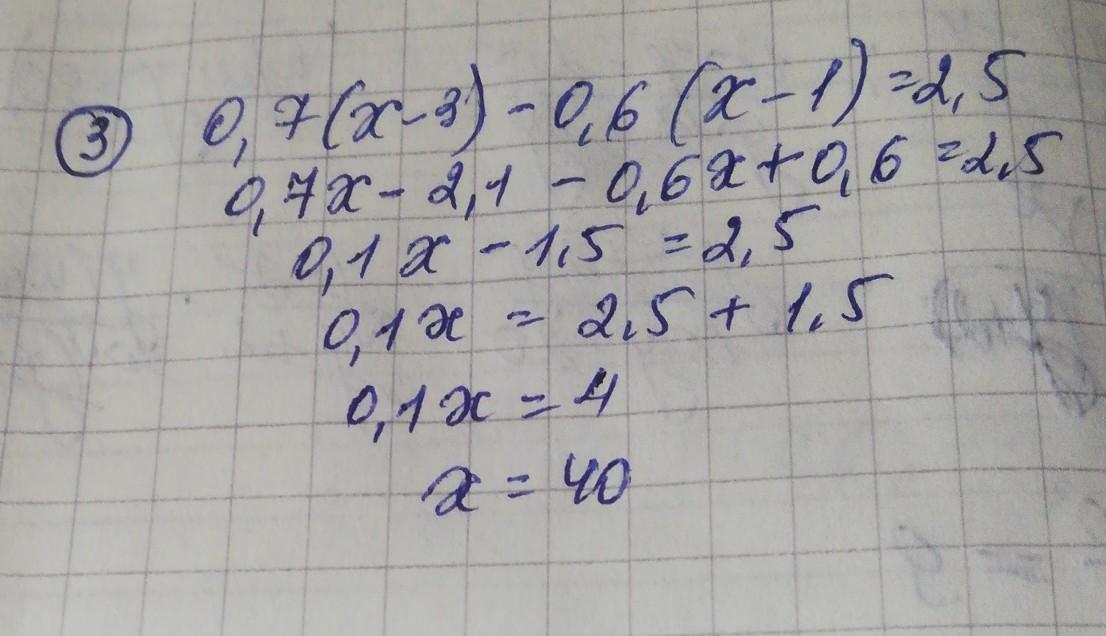 ③ 0,7(x-3)-0,6(x-1)=2,5
0,7x-2,1-0,6x+0,6=2,5
0,1x-1,5=2,5
0,1x=2,5+1,5
0,1x=4
x=40